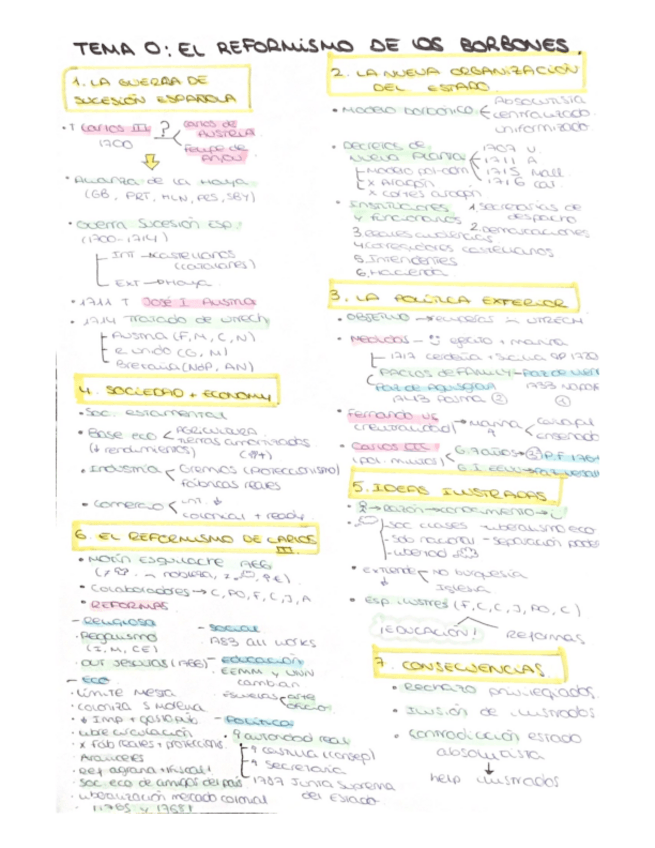 TEMA 0: EL REFORMISMO DE LOS BORBONES.
1. LA GUERRA DE
SUCESIÓN ESPAÑOLA
• † Carlos II ?
1700
Carlos de
Austria
Felipe de
Anjou
• Alianza de La Haya
(GB, PRT, HLN, PES, SBY)
• Guerra Sucesión Esp.
(1700-1714)
INT → castellanos
(catalanes)
EXT → Haya.
• 1711 † José I Austria
• 1714 Tratado de Utrech
Austria (F, M, C, N)
(G, M)
Bretaña (N&P, AN)
4. SOCIEDAD + ECONOMY
• Soc. estamental
• Base eco
(↓ rendimientos)
AGRICULTURA
tierras amortizadas
• Industria
Gremios (PROTECCIONISMO)
fábricas reales
• comercio
int. ↓
colonial +
6. EL REFORMISMO DE CARLOS
III.
• Motín Esquilache 1766
nobleza,
• Colaboradores → C, PO, F, C, J, A
• REFORMAS
- RELIGIOSO
Regalismo
(I, M, CE)
• OUT Jesuitas (1766)
- ECO
• límite Mesta
• coloniza S Morena
• libre circulación
• x fab reales + protecciones.
Aranceles
• Ref agraria +
• Soc. eco de amigos del país
• liberalización mercado colonial
• 1765 y
- Social
1783 all works
- EDUCACIÓN
• EEMM y UNN
cambian
• escuelas arte
oficios
- POLÍTICA
• ↑ autoridad real
↑ Castilla (consej)
↑ Secretaría
• 1787 Junta Suprema
del Estado
2. LA NUEVA ORGANIZACIÓN
DEL ESTADO.
• MODELO BORBÓNICO
Absolutista
centralizado
uniformizado.
• Decretos de
Nueva Planta
1707 V.
1711 A
1715 Mall
1716 cat.
Modelo pol-adm
x Aragón
x cortes aragón
• Instituciones
y funcionarios
1. Secretarías de
despacho
2. Demarcaciones
3. Reales audiencias
4. Corregidores castellanos
5. Intendentes
6. Hacienda
3. LA POLÍTICA EXTERIOR
• OBJETIVO → in UTRECH
• Medidas - ejército + marina
1717 Cerdeña + Sicilia 1720
PACTOS de FAMILY
1733
1743 Parma ②
①
• Fernando VI
(neutralidad)
Marina
↑
Carvajal
ensenada
• Carlos III
5. IDEAS ILUSTRADAS
razón → conocimiento →
soc clases - liberalismo eco
- sob nacional - separación poder
- libertad
• extiende
NO burguesía
Iglesia
• Esp. ilustres (F, C, C, J, PO, C)
¡EDUCACIÓN!
REFORMAS
7. CONSECUENCIAS
• Rechazo privilegiados.
• Ilusión de ilustrados
• contradicción estado
absolutista
↓
help ilustrados